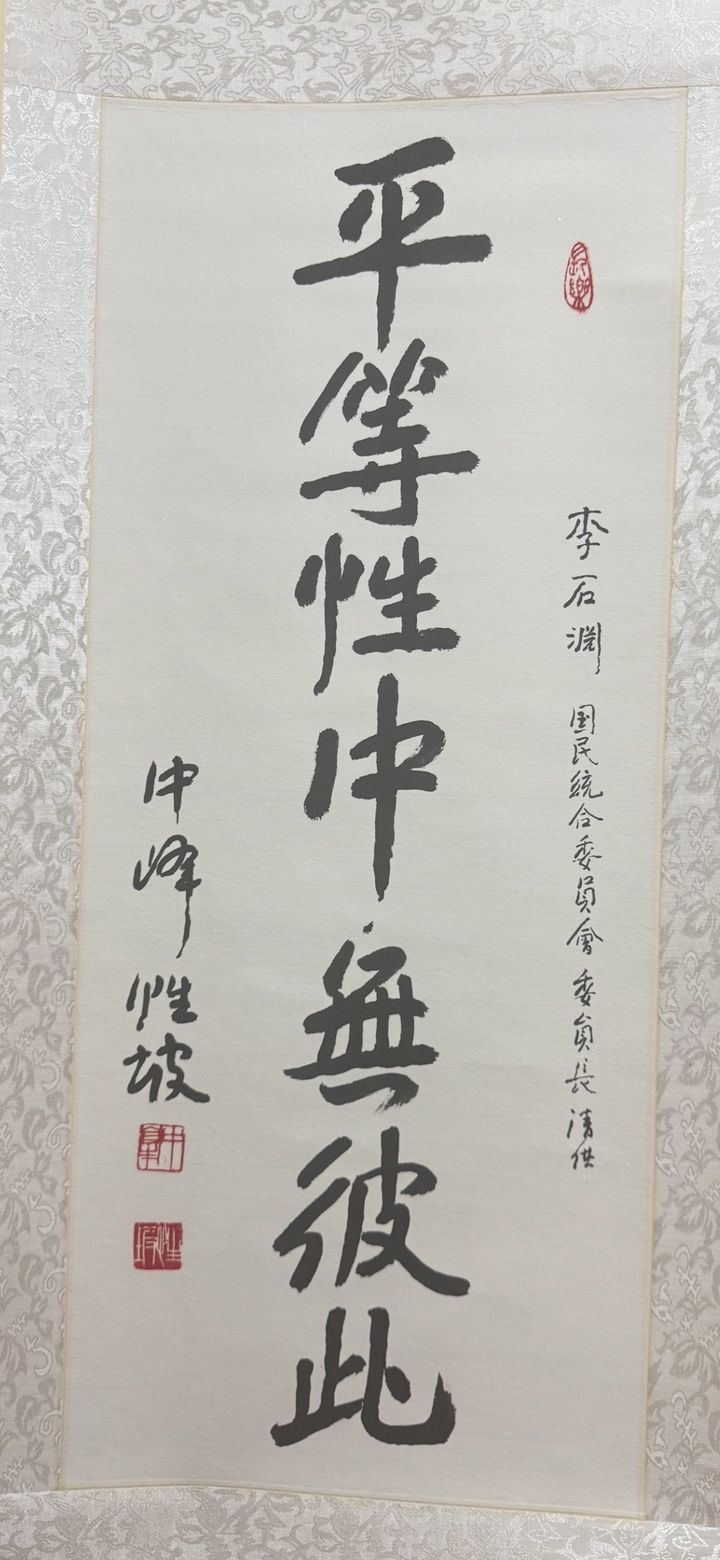 李石渊 国民統合委員會 委員長 清供
平等性中無彼此
中峰 性坡